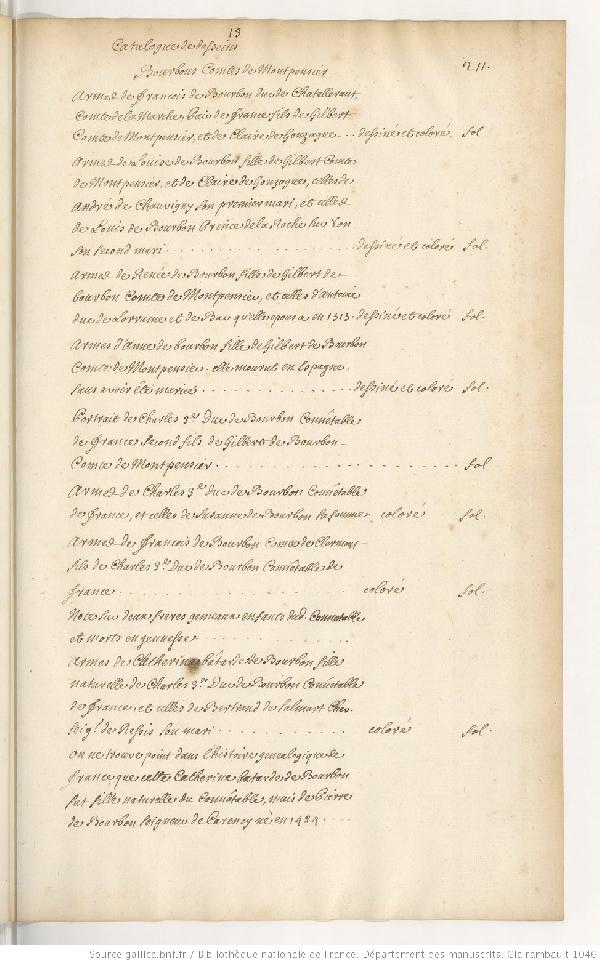 13
Catalogue de desseins
Bourbons Comtes de Montpensier
211.
Armes de francois de Bourbon duc de Chatelleraut,
Comte de la Marche, Pair de france fils de Gilbert
Comte de Montpensier, et de Claire de Gonzague . . dessiné et coloré fol
Armes de Louise de Bourbon fille de Gilbert Comte
de Montpensier, et de Claire de Gonzague, celles de
André de Chauvigny son premier mari, et celles
de Louis de Bourbon Prince de la Roche sur Yon
son second mari . . . . . . . . . . . . dessiné et coloré fol.
Armes de Renée de Bourbon fille de Gilbert de
bourbon Comte de Montpensier, et celles d'antoine
duc de Lorraine et de Bar qu'elle epousa en 1515. dessiné et coloré fol.
Armes d'anne de bourbon fille de Gilbert de Bourbon
Comte de Montpensier. elle mourut en Espagne,
sans avoir été mariée . . . . . . . . . . dessiné et coloré fol.
Portrait de Charles 3.e Duc de Bourbon Connétable
de france second fils de Gilbert de Bourbon
Comte de Montpensier . . . . . . . . . . . . . . . . . fol
Armes de Charles 3.e duc de Bourbon Connétable
de france, et celles de Suzanne de Bourbon sa femme, coloré fol.
Armes de francois de Bourbon Comte de Clermont
fils de Charles 3.e Duc de Bourbon Connétable de
france . . . . . . . . . . . . . . . . coloré fol.
Note sur deux freres gemeaux enfants dud. Connetable
et morts en jeunesse . . . . . . . . . .
Armes de Catherine bâtarde de Bourbon fille
naturelle de Charles 3.e Duc de Bourbon Connétable
de france, et celles de Bertrand de Salmart Chev.
seig.r de Ressis son mari . . . . . . . . . coloré fol.
on ne trouve point dans l'histoire genealogique de
france que cette Catherine batarde de Bourbon
fut fille naturelle du Connêtable, mais de Pierre
de Bourbon seigneur de Carency né en 1424 . . . .
Source gallica.bnf.fr / Bibliothèque nationale de France. Département des manuscrits. Clairambault 1046